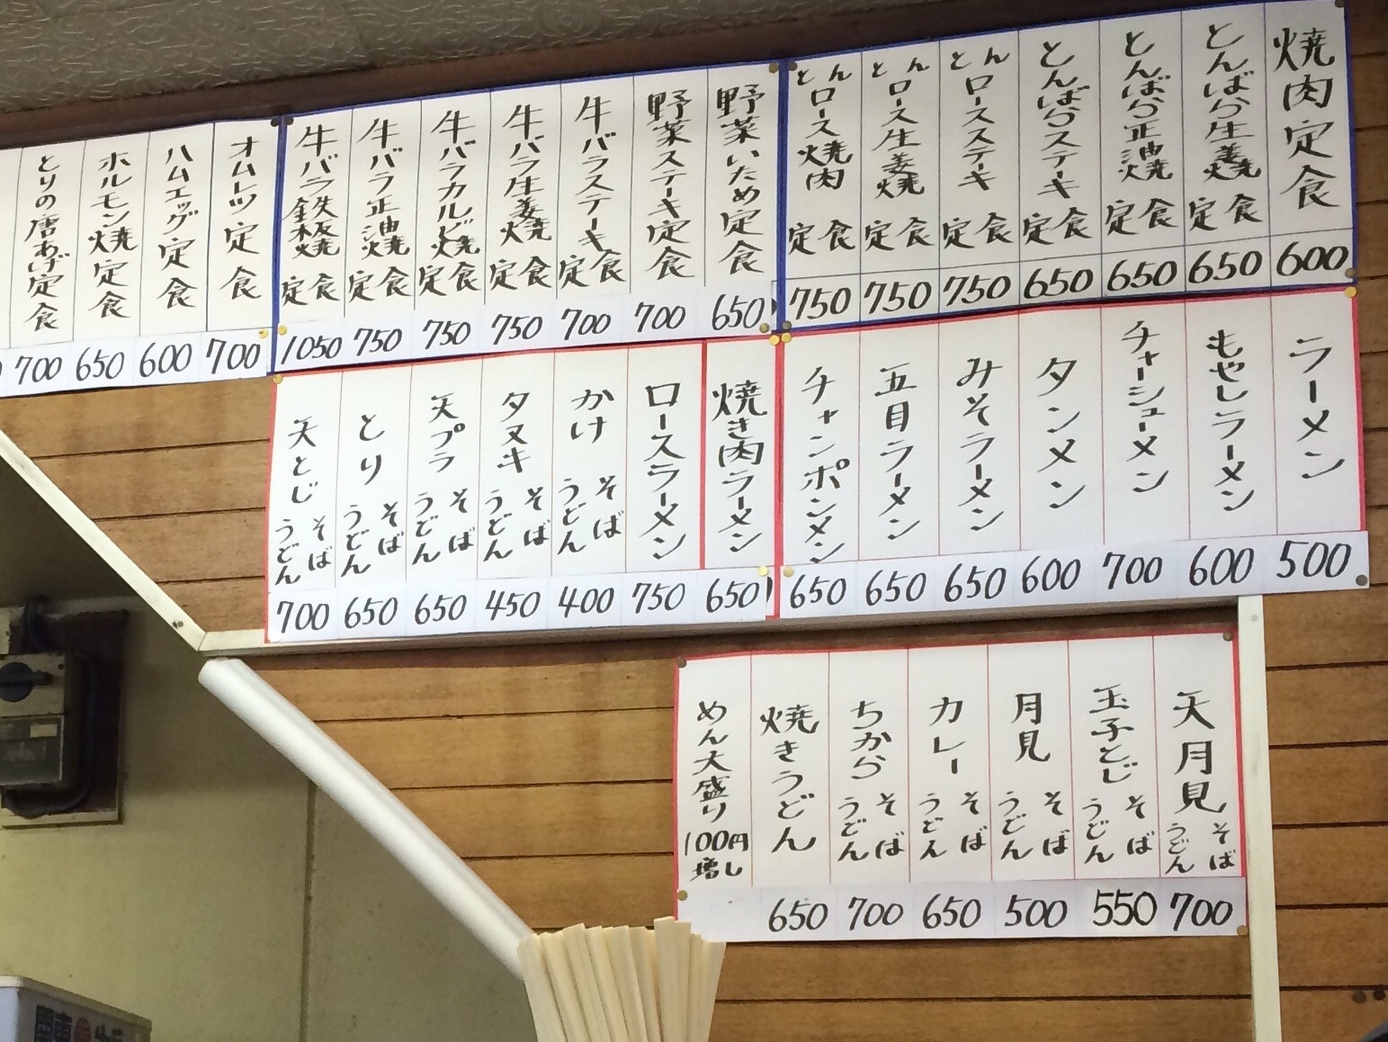 焼肉定食 600
とんばら生姜焼定食 650
とんばら正油焼定食 650
とんばらステーキ定食 650
とんロースステーキ定食 750
とんロース生姜焼定食 750
とんロース焼肉定食 750
野菜いため定食 650
野菜ステーキ定食 700
牛バラステーキ定食 700
牛バラ生姜焼定食 750
牛バラカルビ焼定食 750
牛バラ正油焼定食 750
牛バラ鉄板焼定食 1050
オムレツ定食 700
ハムエッグ定食 600
ホルモン焼定食 650
とりの唐あげ定食 700
ラーメン 500
もやしラーメン 600
チャーシューメン 700
タンメン 600
みそラーメン 650
五目ラーメン 650
チャンポンメン 650
焼き肉ラーメン 650
ロースラーメン 750
かけ そば うどん 400
タヌキ そば うどん 450
天プラ そば うどん 650
とり そば うどん 650
天とじ そば うどん 700
天月見 そば うどん 700
玉子とじ そば うどん 550
月見 そば うどん 500
カレー そば うどん 650
ちから そば うどん 700
焼きうどん 650
めん大盛り 100円増し